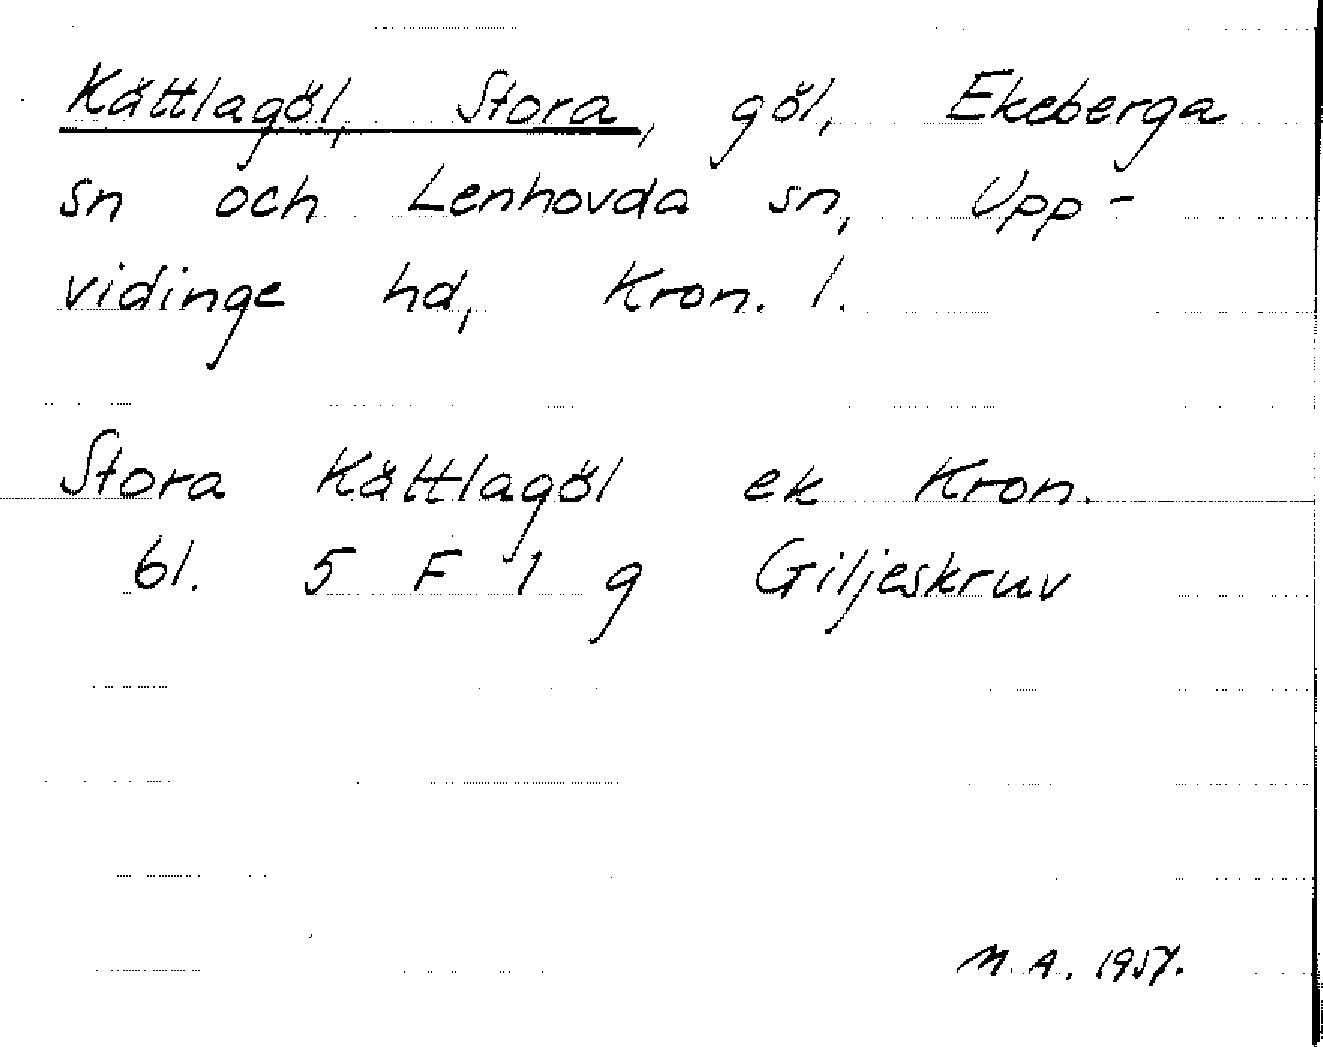 Kättlagöl, Stora, göl, Ekeberga
sn och Lenhovda sn, Upp-
vidinge hd, Kron. l.
Stora Kättlagöl ek Kron.
bl. 5 F 1 g Giljeskruv
M. A. 1957.